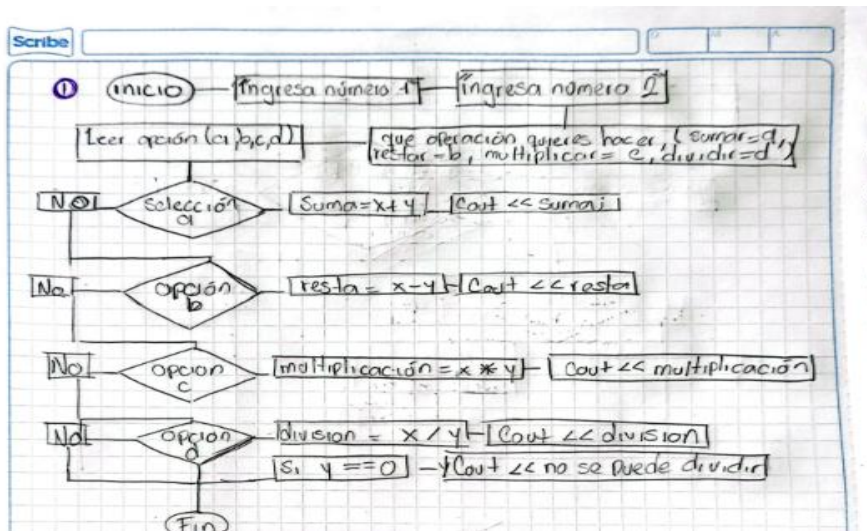 Scribe
① inicio Ingresa número 1 ingresa número 2
Leer opción (a,b,c,d) que operación quieres hacer, (sumar=a,
restar=b, multiplicar= c, dividir=d)
No selección a Suma=x+y Cout << suma;
No opción b resta= x-y Cout << resta
No opcion c multiplicación = x * y Cout << multiplicación
No opción d division = x / y Cout << division
Si y ==0 Cout << no se puede dividir
Fin